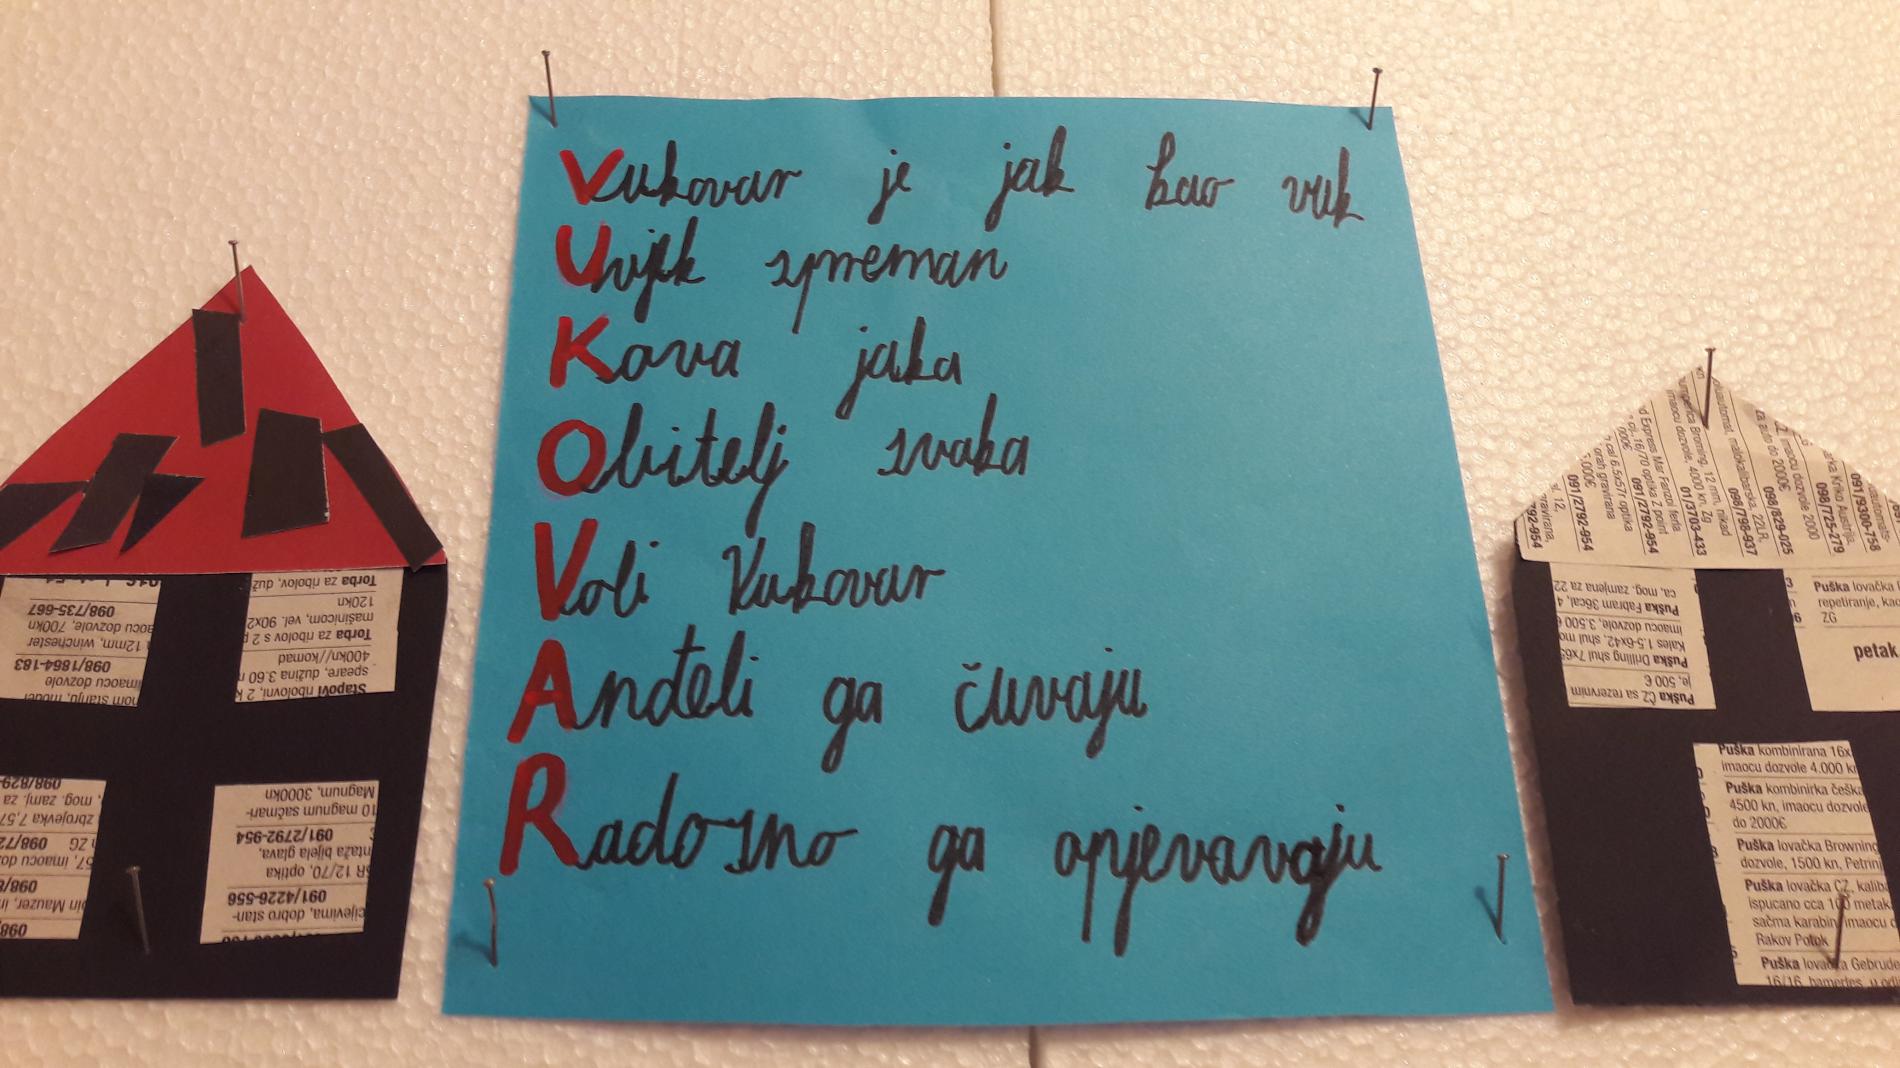 Vukovar je jak kao vuk
Uvijek spreman
Kava jaka
Obitelj svaka
Voli Vukovar
Anđeli ga čuvaju
Radosno ga opjevavaju
Torba za ribolov, duž
120kn
mašinicom, vel. 90x2
Torba za ribolov s 2 p
400kn//komad
speare, dužina 3.60
Štapovi ribolovni, 2 k
098/735-667
dozvole, 700kn
12mm, winchester
098/1864-183
imaocu dozvole
nom stanju, model
Magnum, 3000kn
10 magnum sačmar-
091/2792-954
ntaža bijela glava,
12/70, optika
091/4226-556
cijevima, dobro stan-
098/829
mog. zamj. za
zbrojevka 7,57
imaocu
pin Mauzer,
091/2792-954
01/3703-433
098/798-937
098/829-025
098/725-279
091/9300-758
ca, mog. zamjena za 22
Puška Fabram 36cal, 4
imaocu dozvole, 3.500
Kales 1.5-6x42,
Puška Drilling shul 7x65
je, 500 €
Puška ČZ sa rezervnim
Puška lovačka
repetiranje, kao
ZG
petak
Puška kombinirana 16x
imaocu dozvole 4.000 kn
Puška kombinirka češka
4500 kn, imaocu dozvole
do 2000€
Puška lovačka Browning
dozvole, 1500 kn, Petrinj
Puška lovačka CZ, kalib
ispucano cca 100 metak
sačma karabin, imaocu
Rakov Potok
Puška lovačka Gebrude
16/16,